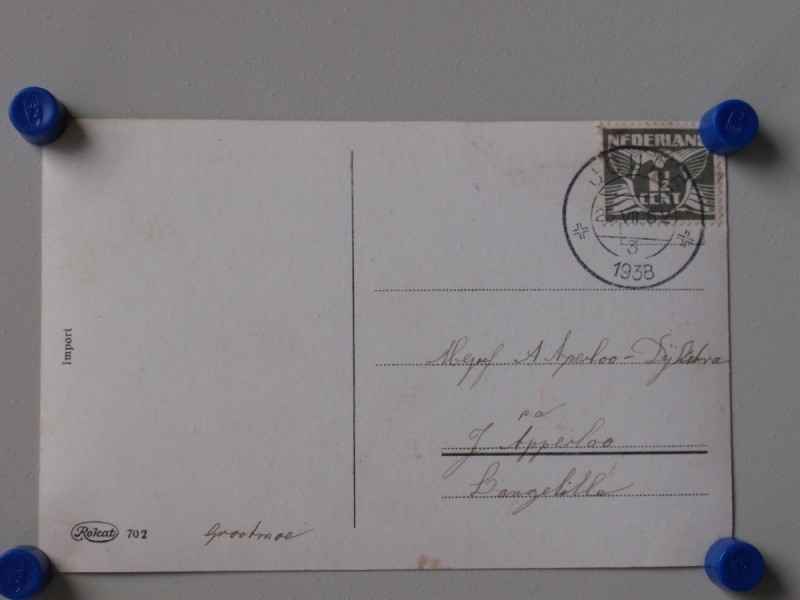 NEDERLAND
1½
CENT
3
1938
Import
Mejuf A Aperloo-Dijkstra
pa
J Apperloo
Langelille
Rokat 702
Grootmoe